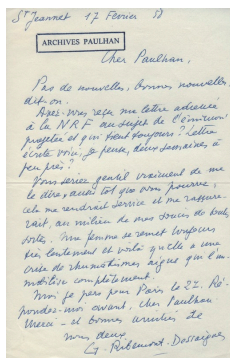 St Jeannet 17 Février 58
ARCHIVES PAULHAN
Cher Paulhan,
Pas de nouvelles, bonnes nouvelles,
dit-on.
Avez-vous reçu ma lettre adressée
à la NRF au sujet de l'émission
projetée et qui tient toujours? Lettre
écrite voici, je pense, deux semaines à
peu près?
Vous seriez gentil vraiment de me
le dire aussitôt que vous pourrez,
cela me rendrait service et me rassure-
rait, au milieu de mes soucis de toutes
sortes. Ma femme se remet toujours
très lentement et voilà qu'elle a une
crise de rhumatismes aigus qui l'im-
mobilise complètement.
Moi je pars pour Paris le 27. Ré-
pondez-moi avant, cher Paulhan.
Merci - et bonnes amitiés de
nous deux
G. Ribemont-Dessaignes